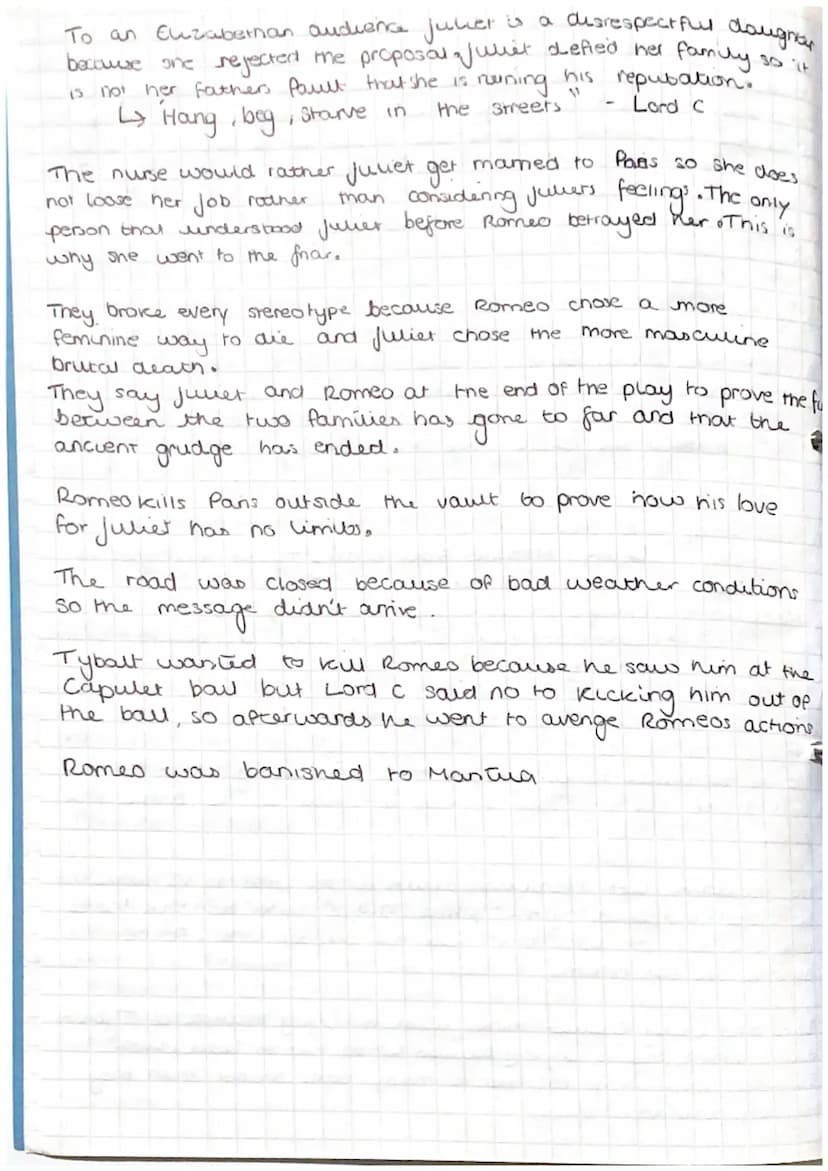 To an Elizabethan audience Juliet is a disrespectful daughter
because she rejected the proposal. Juliet defied her family so it
is not her fathers fault that she is ruining his reputation.
↳ "Hang, beg, starve in the streets" - Lord C
The nurse would rather Juliet get married to Paris so she does
not loose her job rather than considering Juliets feelings. The only
person that understood Juliet before Romeo betrayed her. This is
why she went to the friar.
They broke every stereotype because Romeo chose a more
feminine way to die and Juliet chose the more masculine
brutal death.
They say Juliet and Romeo at the end of the play to prove the
between the two families has gone to far and that the
ancient grudge has ended.
Romeo kills Paris outside the vault to prove how his love
for Juliet has no limits.
The road was closed because of bad weather conditions
so the message didn't arrive.
Tybalt wanted to kill Romeo because he saw him at the
Capulet ball but Lord C said no to kicking him out of
the ball, so afterwards he went to avenge Romeos actions
Romeo was banished to Mantua